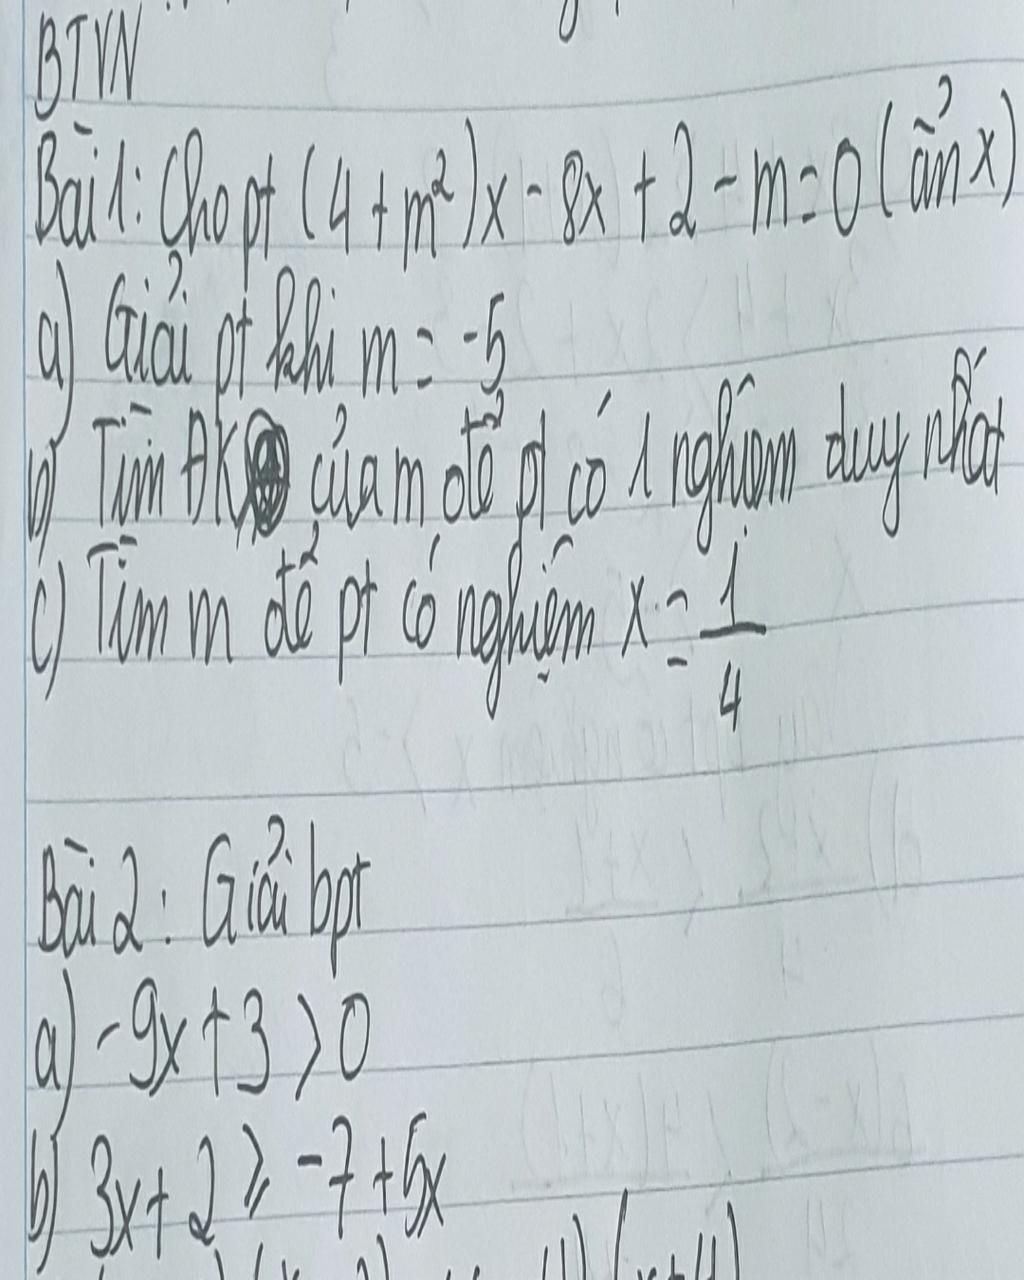 BTVN
Bài 1: Cho pt (4 + m²)x - 8x + 2 - m = 0 (ẩn x)
a) Giải pt khi m = -5
b) Tìm ĐK của m để pt có 1 nghiệm duy nhất
c) Tìm m để pt có nghiệm x = 1/4
Bài 2: Giải bpt
a) -9x + 3 > 0
b) 3x + 2 ≥ -7 + 5x